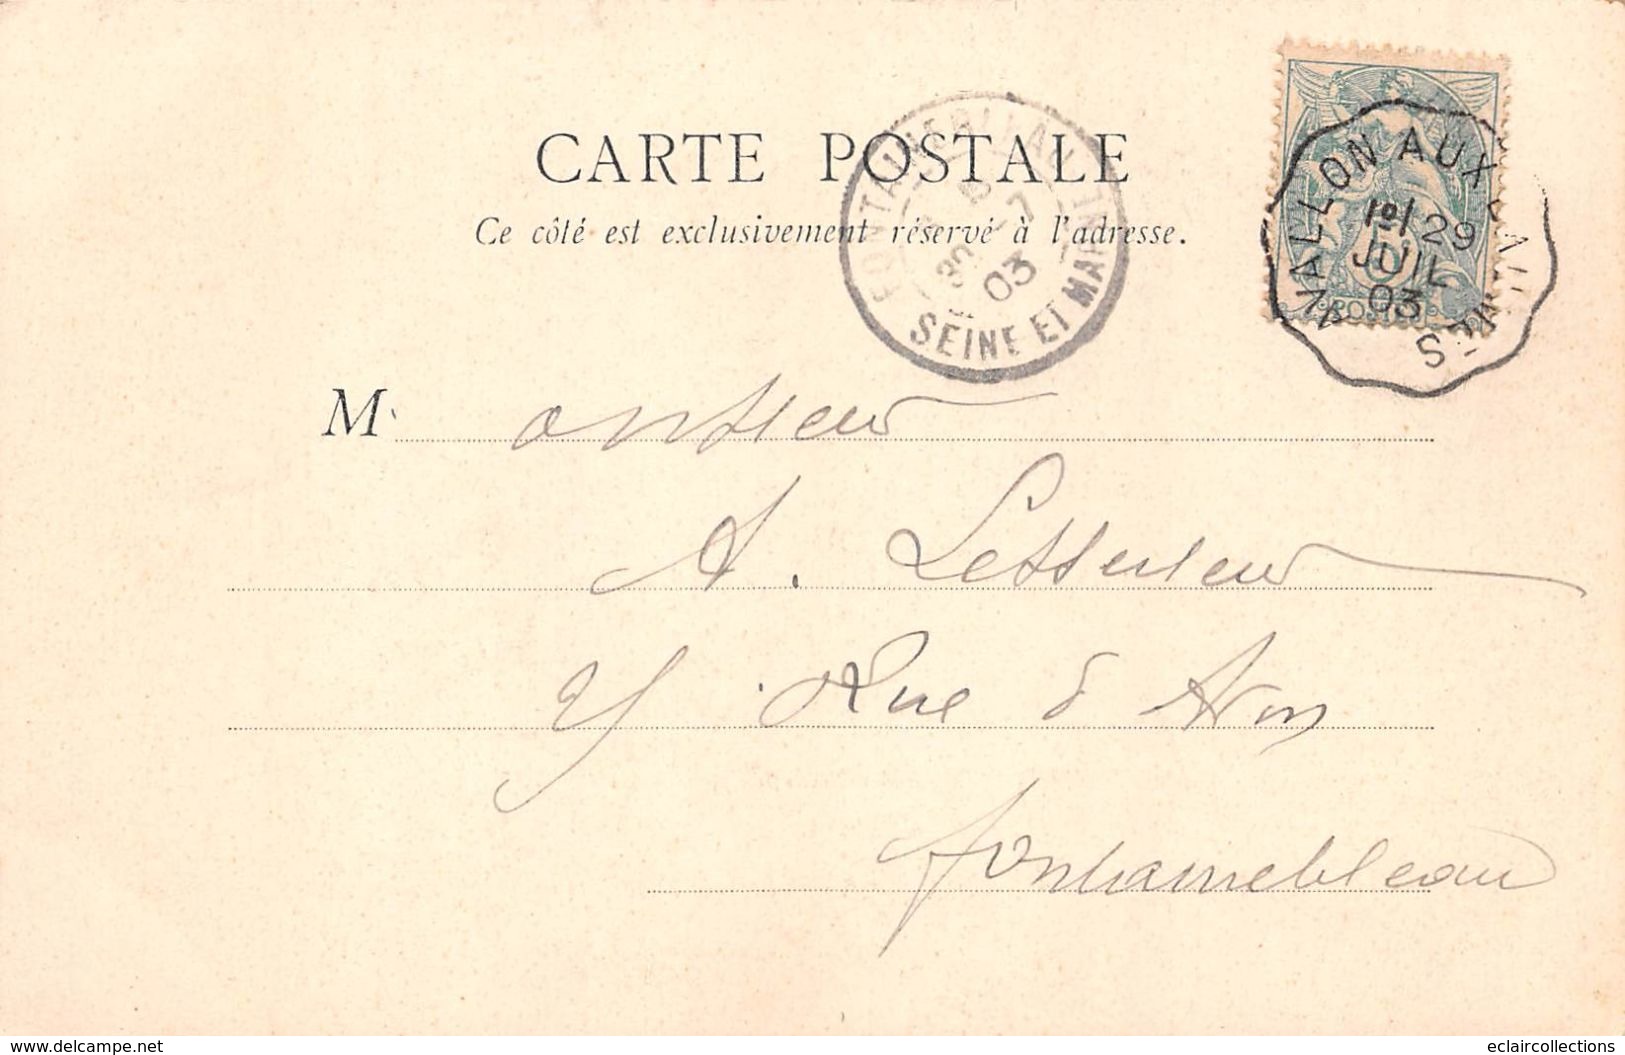 CARTE POSTALE
Ce côté est exclusivement réservé à l'adresse.
FONTAINEBLEAU
30 -7
03
SEINE ET MARNE
VALLON AUX
1º/ 29
JUIL
03
5
POSTES
Monsieur
A.
Rue d'Avon
fontainebleau
www.delcampe.net
eclaircollections